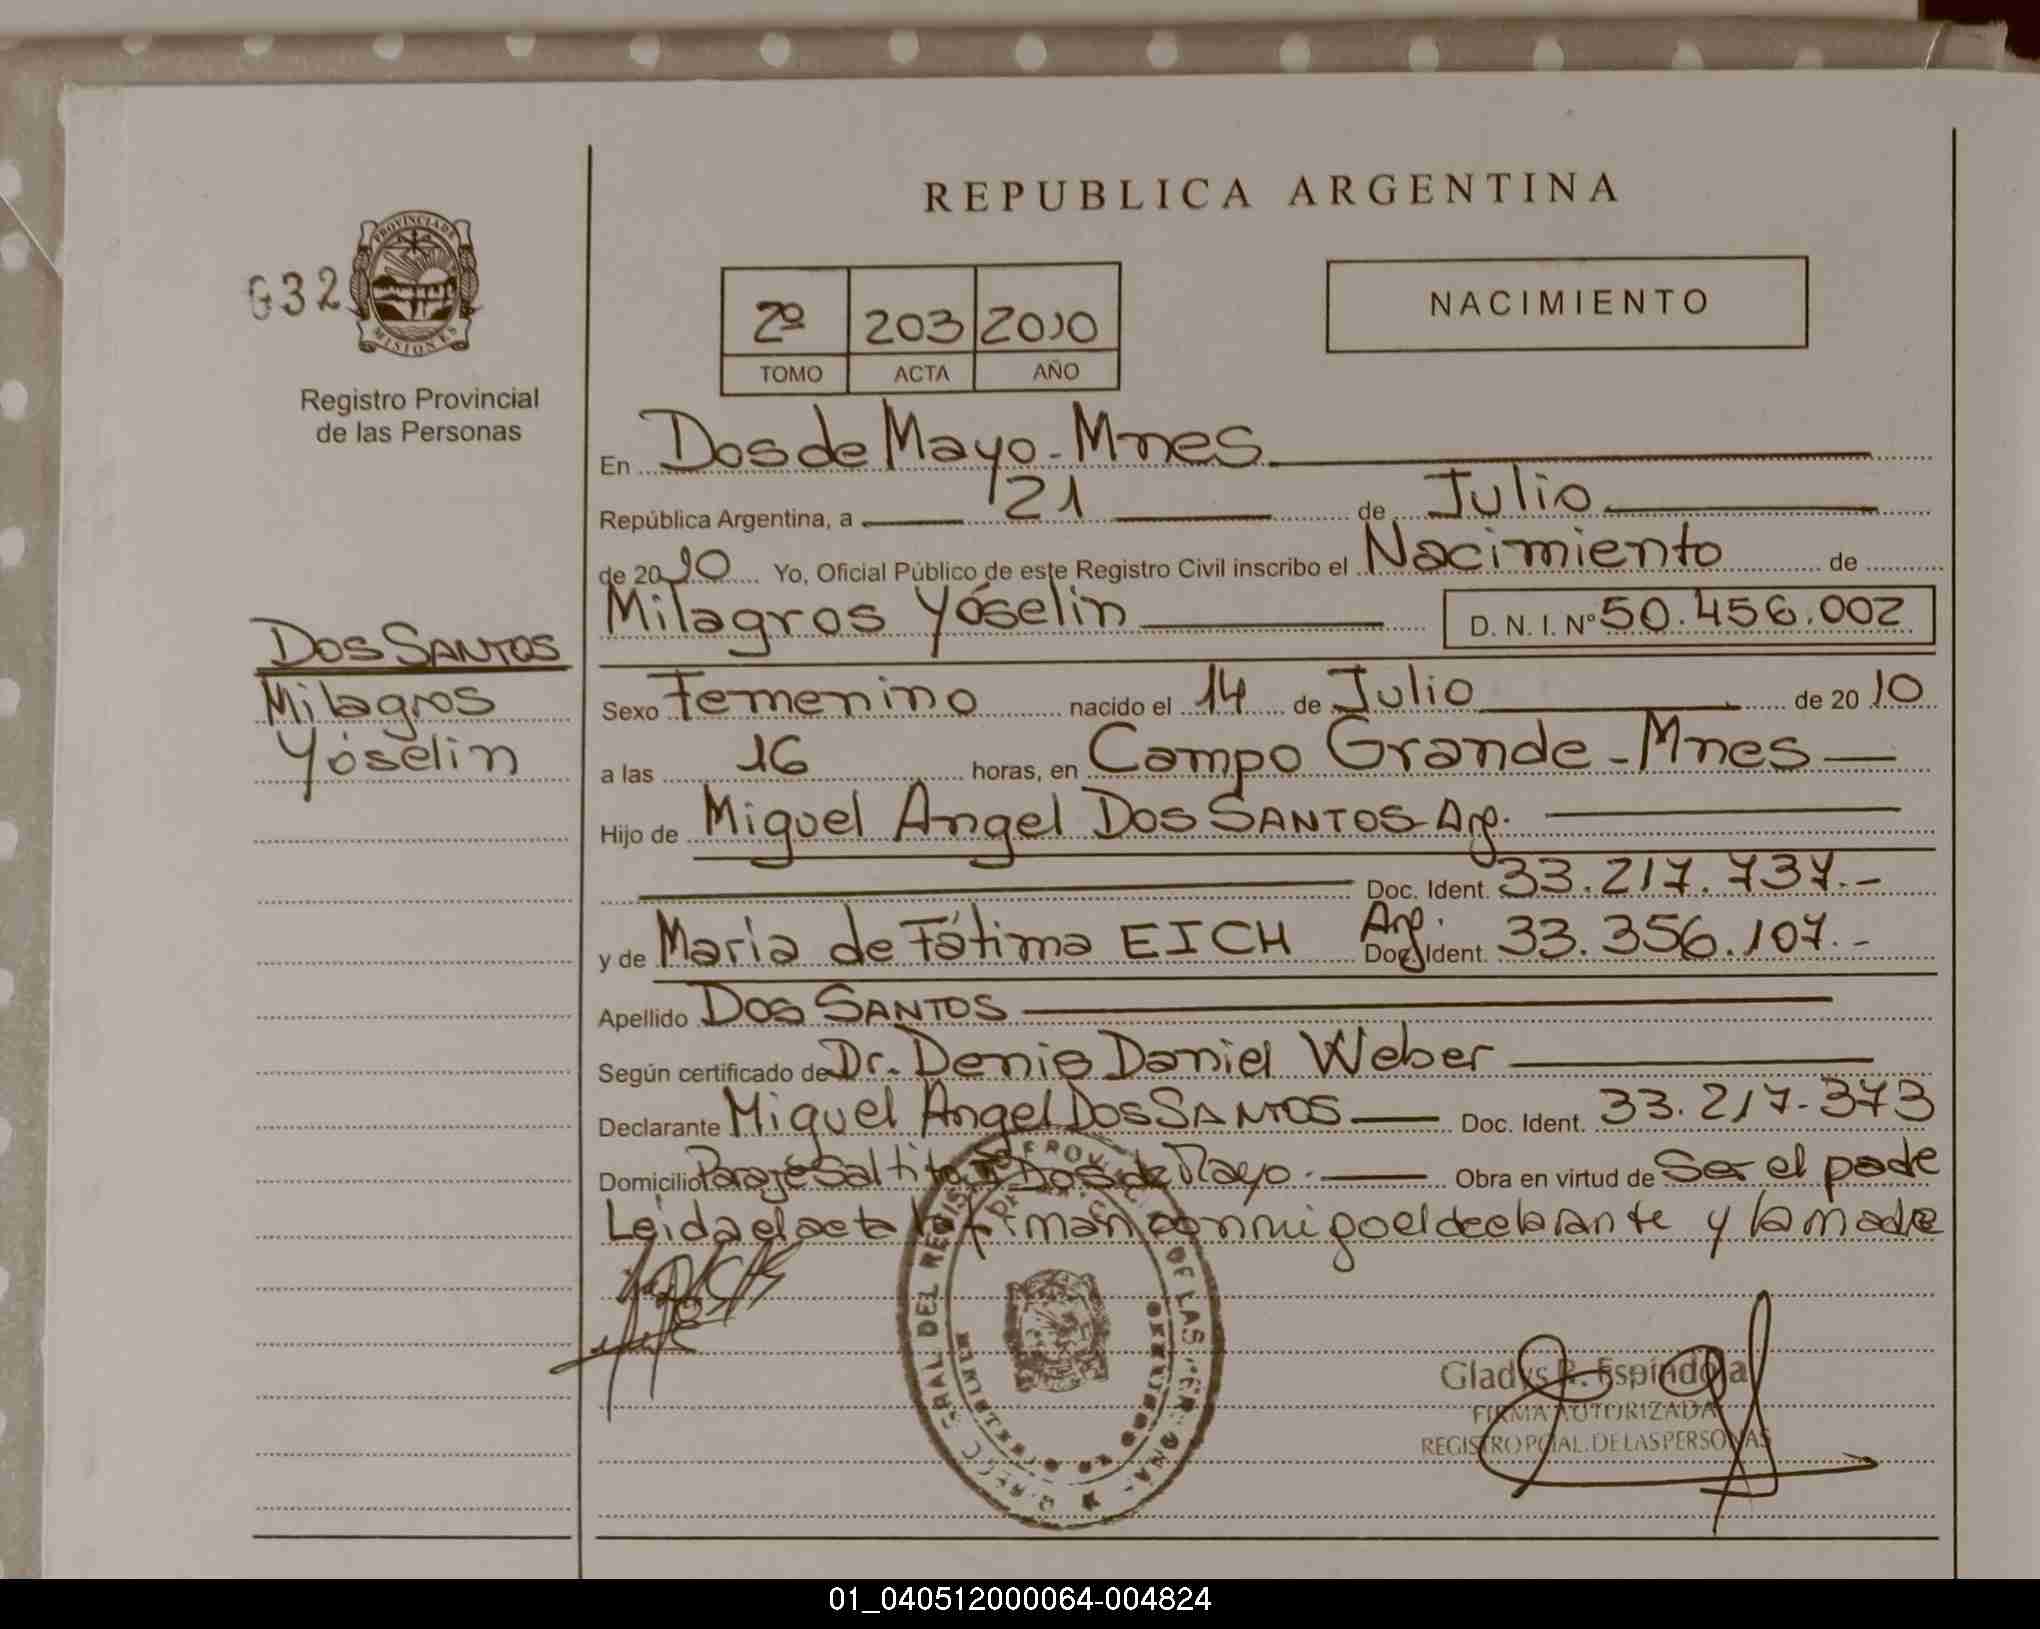 REPUBLICA ARGENTINA
PROVINCIA DE
MISIONES
632
Registro Provincial
de las Personas
2º 203 2010
TOMO ACTA AÑO
NACIMIENTO
En Dos de Mayo - Mnes
República Argentina, a 21 de Julio
de 2010 Yo, Oficial Público de este Registro Civil inscribo el Nacimiento de
Milagros Yóselin D. N. I. Nº 50.456.002
DOS SANTOS
Milagros
Yóselin
Sexo Femenino nacido el 14 de Julio de 20 10
a las 16 horas, en Campo Grande - Mnes
Hijo de Miguel Angel DOS SANTOS - Arg.
Doc. Ident. 33.217.737.-
y de Maria de Fátima EICH Arg. Doc. Ident. 33.356.107.-
Apellido DOS SANTOS
Según certificado de Dr. Denis Daniel Weber
Declarante Miguel Angel DOS SANTOS Doc. Ident. 33.217.373
Domicilio Paraje Saltito Dos de Mayo. Obra en virtud de Ser el padre
Leida el acta la firman conmigo el declarante y la madre
Gladys R. Espíndola
FIRMA AUTORIZADA
REGISTRO PCIAL. DE LAS PERSONAS
01_040512000064-004824